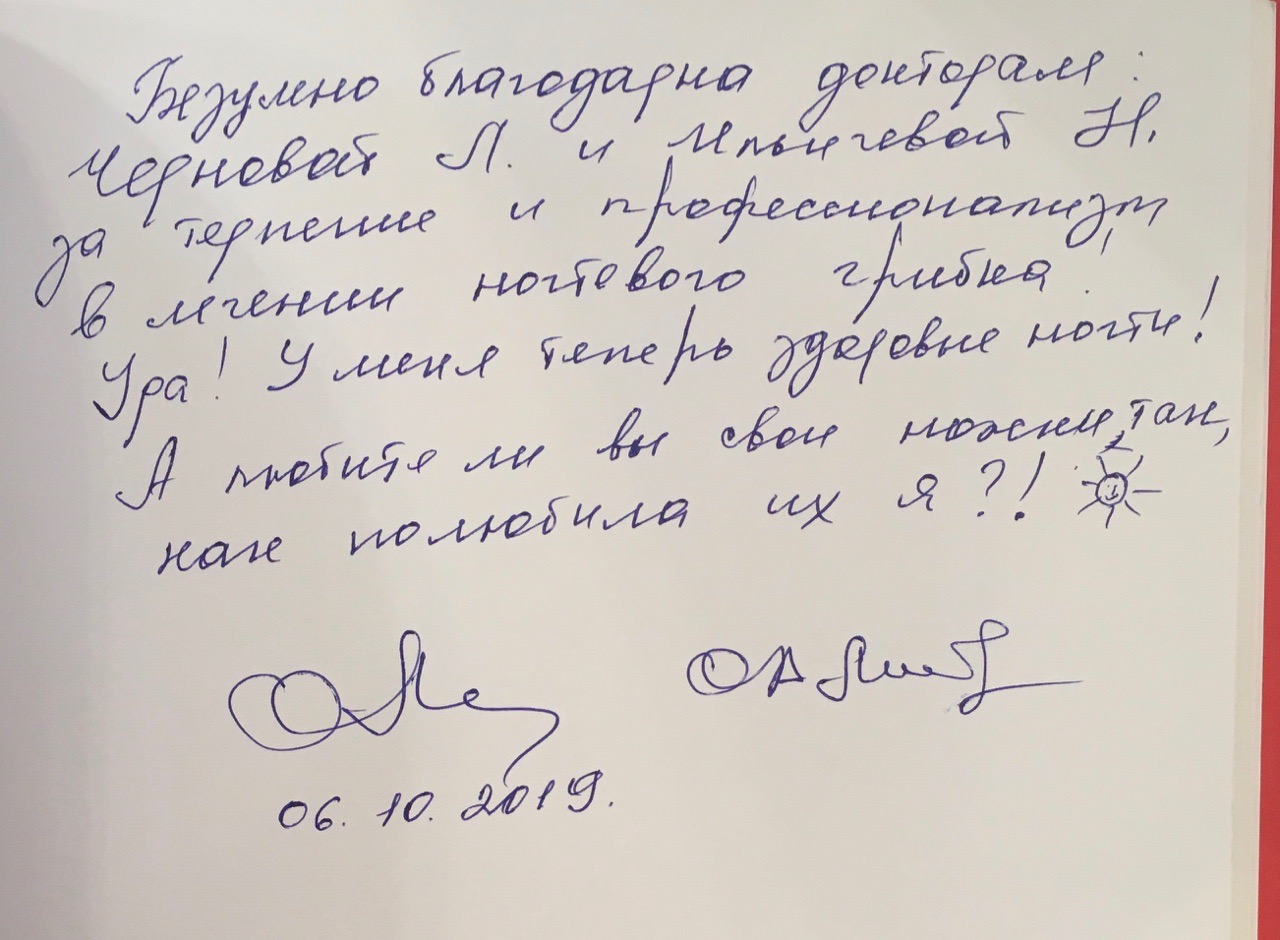 Безумно благодарна докторам:
Черновой Л. и Ильичевой Н.
за терпение и профессионализм
в лечении ногтевого грибка!
Ура! У меня теперь здоровые ногти!
А любите ли вы свои ножки, так,
как полюбила их я?!
06.10.2019.